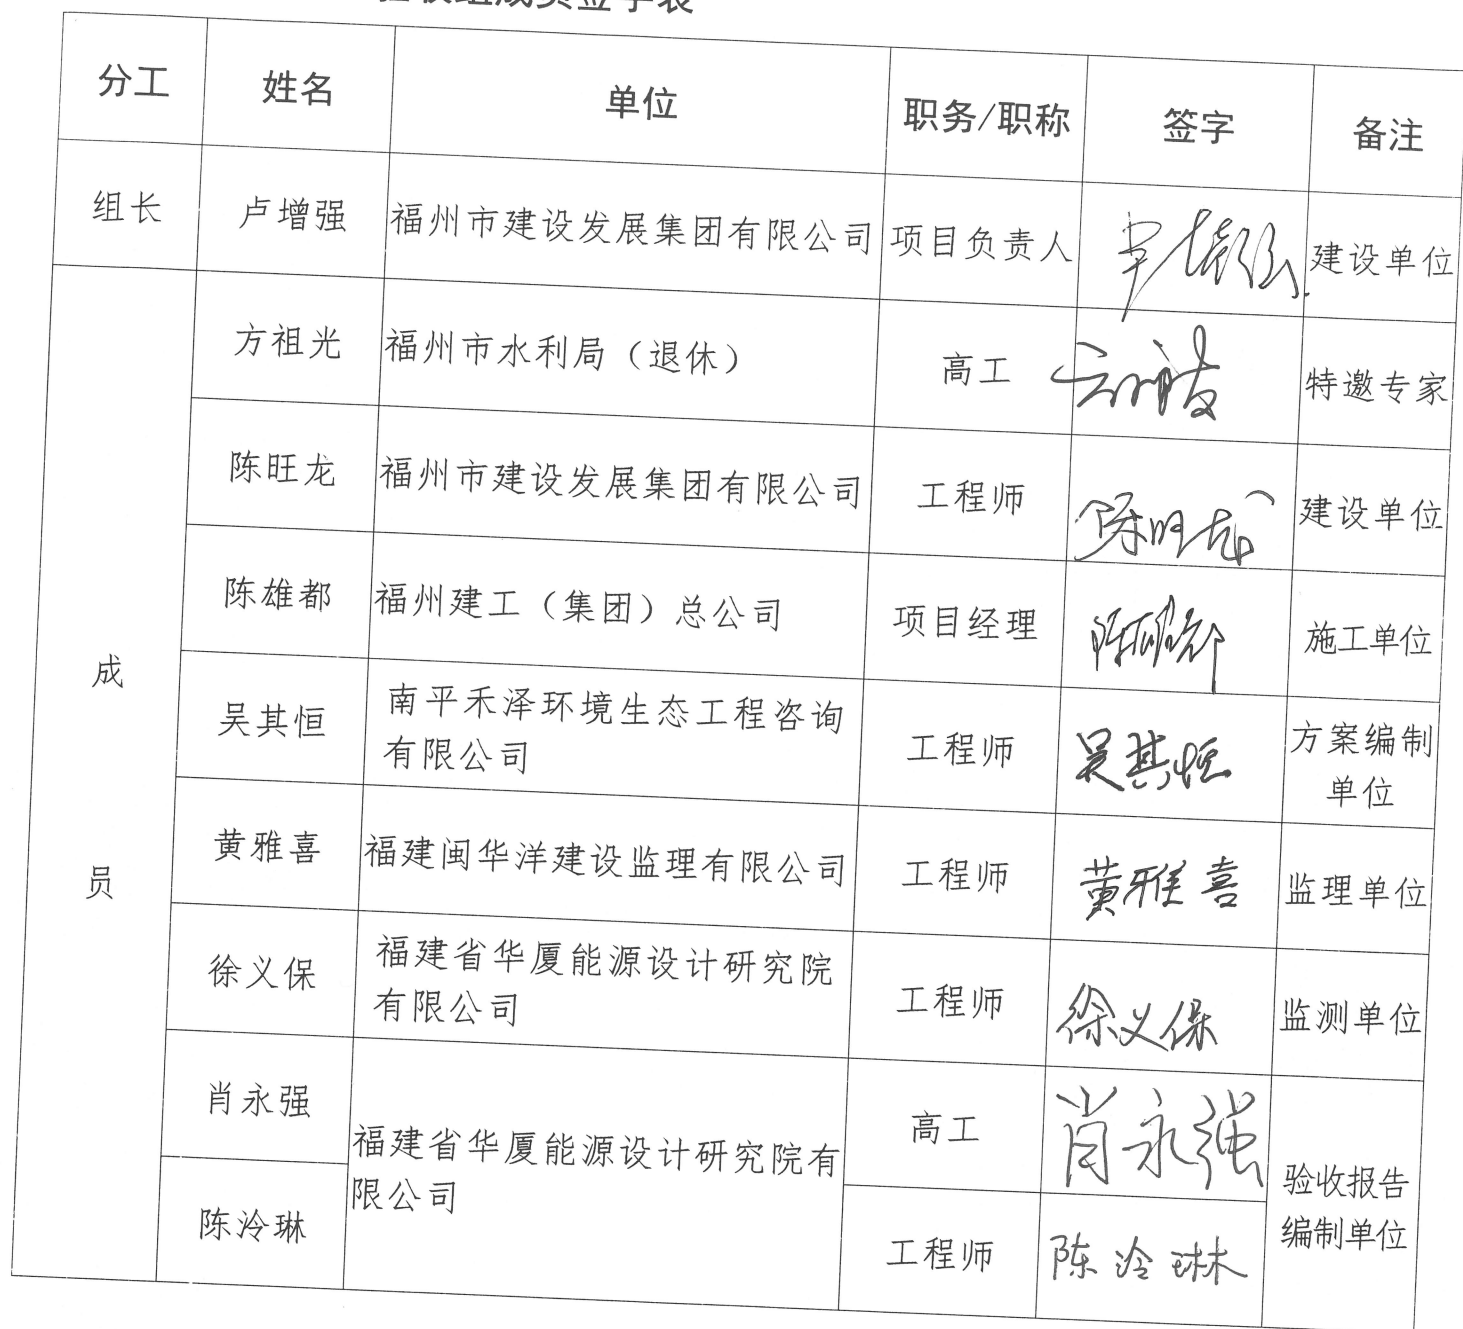 验收组成员签字表
分工 姓名 单位 职务/职称 签字 备注
组长 卢增强 福州市建设发展集团有限公司 项目负责人 建设单位
成员
方祖光 福州市水利局（退休） 高工 特邀专家
陈旺龙 福州市建设发展集团有限公司 工程师 陈旺龙 建设单位
陈雄都 福州建工（集团）总公司 项目经理 陈雄都 施工单位
吴其恒 南平禾泽环境生态工程咨询
有限公司 工程师 吴其恒 方案编制
单位
黄雅喜 福建闽华洋建设监理有限公司 工程师 黄雅喜 监理单位
徐义保 福建省华厦能源设计研究院
有限公司 工程师 徐义保 监测单位
肖永强 福建省华厦能源设计研究院有
限公司 高工 肖永强 验收报告
编制单位
陈泠琳 工程师 陈泠琳